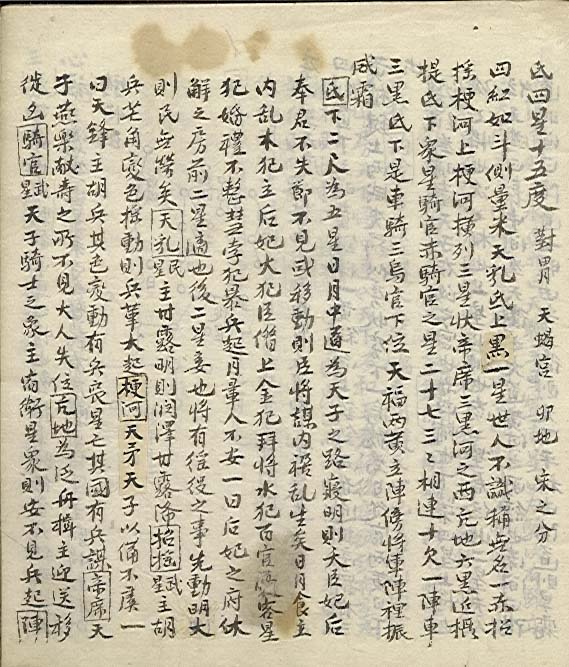 氐四星十五度 對胃 天蝎宮 卯地 宋之分
四紅如斗側量米天乳氐上黑一星世人不識稱無名一赤招
搖梗河上梗河橫列三星狀帝席三黑河之西亢地六黑近攝
提氐下眾星騎官赤騎官之星二十七三三相連十欠一陣車
三黑氐下是車騎三烏官下位天福兩黃立陣傍將軍陣裡振
威霜
氐下二尺為五星日月中道為天子之路寢明則大臣妃后
奉君不失節不見或移動則臣將謀內禍亂生矣日月食主
內乱木犯立后妃火犯臣僭上金犯拜將水犯百官憂客星
犯婚禮不整彗孛犯暴兵起月暈人不安一曰后妃之府休
解之房前二星適也後二星妾也將有徭役之事先動明大
則民無勞矣天乳民星主甘露明則潤澤甘露降招搖武星主胡
兵芒角變色搖動則兵革大起梗河天矛天子以備不虞一
曰天鋒主胡兵其色变動有兵喪星亡其國有兵謀帝席天
子燕樂献壽之所不見大人失位亢地為泛舟楫主迎送移
徙凶騎官武星天子騎士之象主宿衛星眾則安不見兵起陣